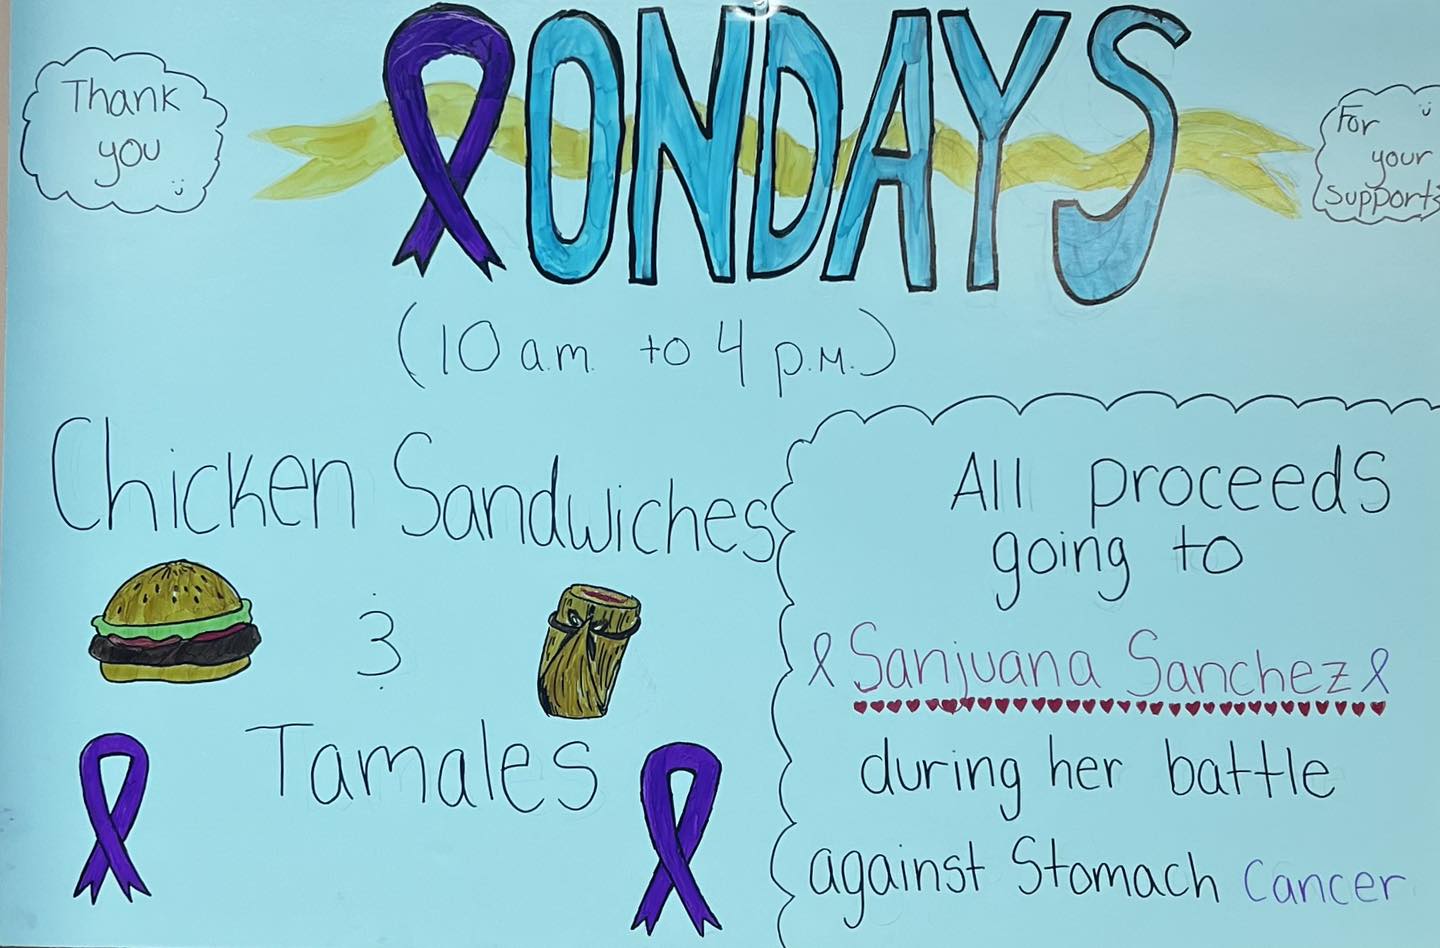 Thank
you
MONDAYS
For
your
support
(10 a.m. to 4 p.m.)
Chicken Sandwiches
&
Tamales
All proceeds
going to
Sanjuana Sanchez
during her battle
against Stomach Cancer